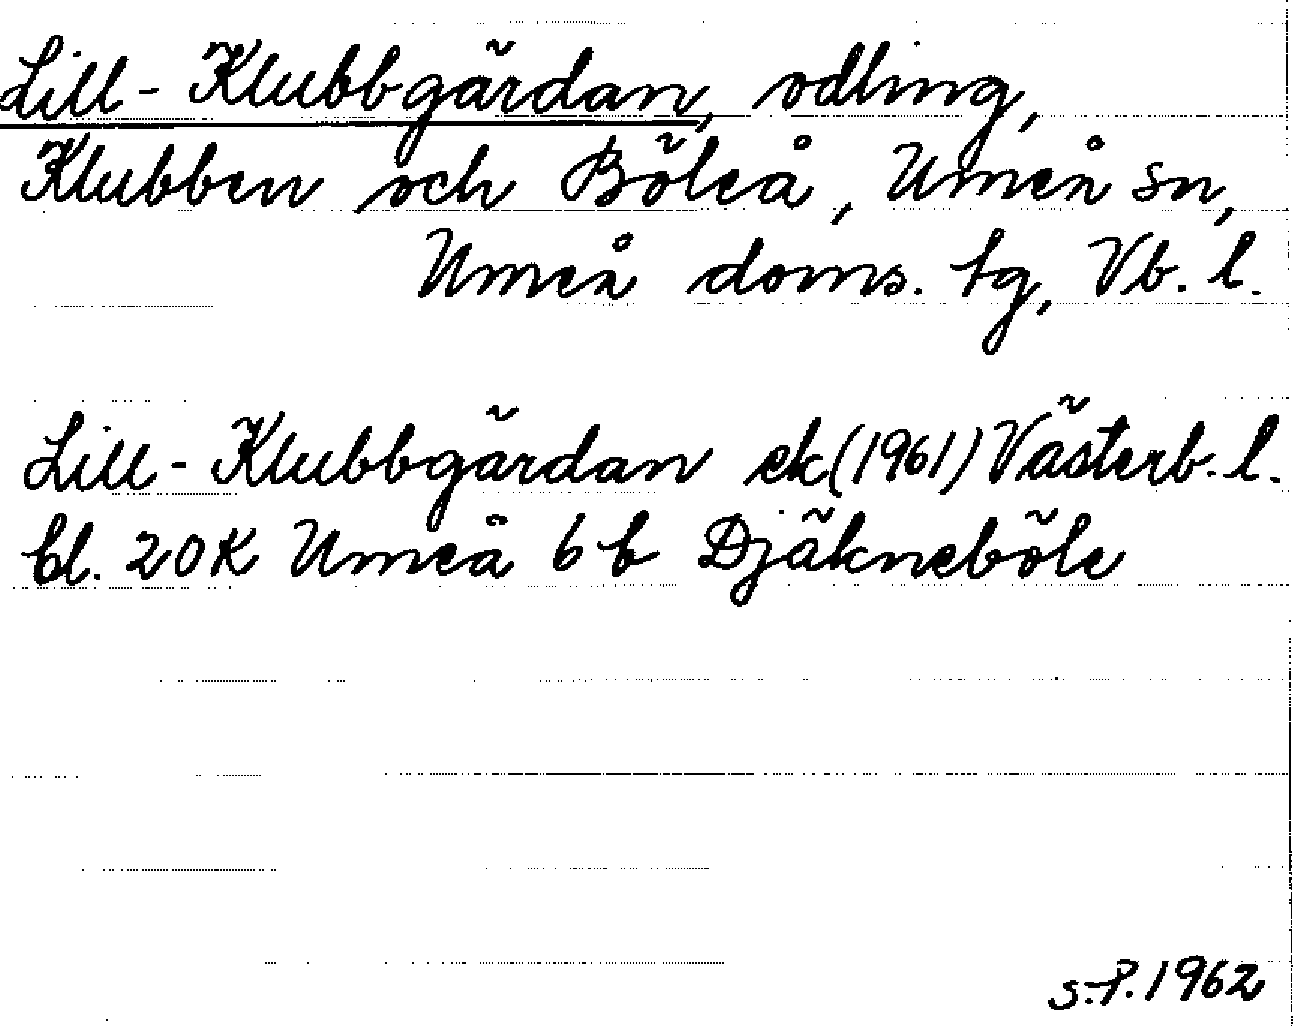 Lill-Klubbgärdan, odling,
Klubben och Böleå, Umeå sn,
Umeå doms. tg, Vb. l.
Lill-Klubbgärdan ek (1961) Västerb. l.
bl. 20K Umeå 6b Djäkneböle
S.P. 1962